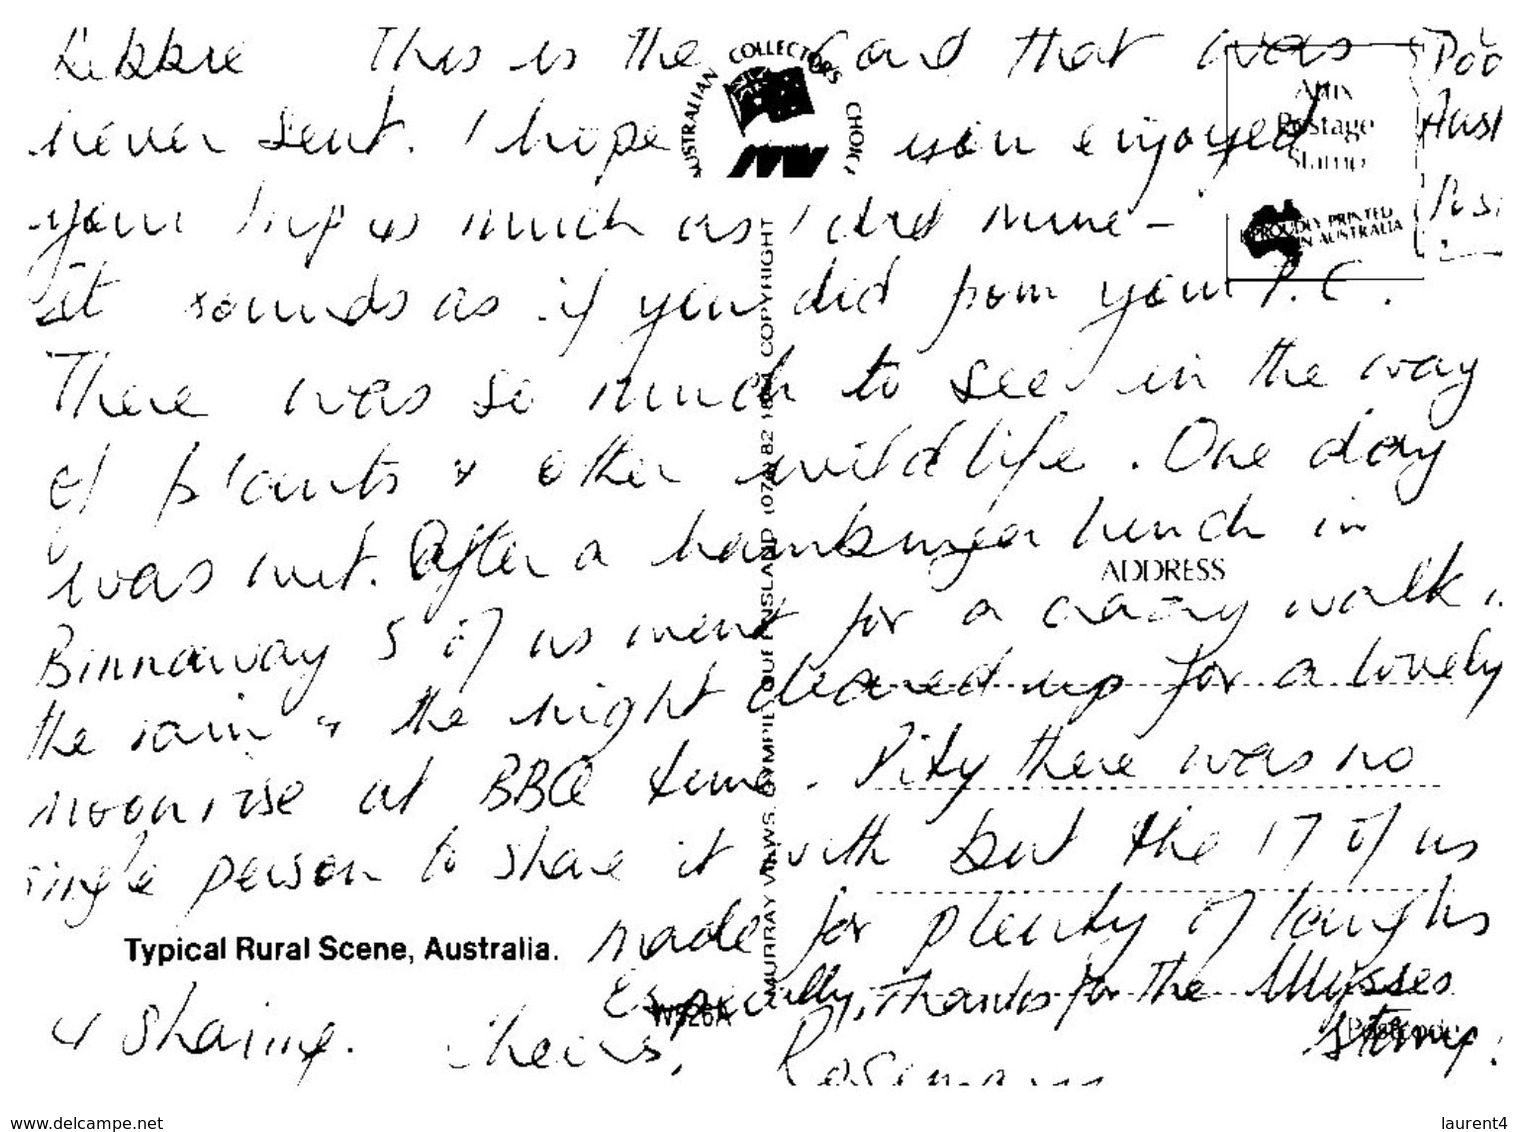 Debbie This is the Card that was
never sent. I hope you enjoyed
your trip as much as I did mine -
it sounds as if you did from your P.C.
There was so much to see in the way
of plants & other wildlife. One day
was wet. After a hamburger lunch in
Binnaway 5 of us went for a crazy walk
the rain & the night cleared up for a lovely
moonrise at BBQ time. Pity there was no
single person to share it with but the 17 of us
made for plenty of laughs
& sharing. Cheers, Rosemary
Especially, Thanks for the Ulysses
stamp.
AUSTRALIAN COLLECTORS CHOICE
MV
Affix
Postage
Stamp
PROUDLY PRINTED
IN AUSTRALIA
MURRAY VIEWS, GYMPIE, QUEENSLAND (071) 82 COPYRIGHT
ADDRESS
Typical Rural Scene, Australia.
Postcode
www.delcampe.net
laurent4